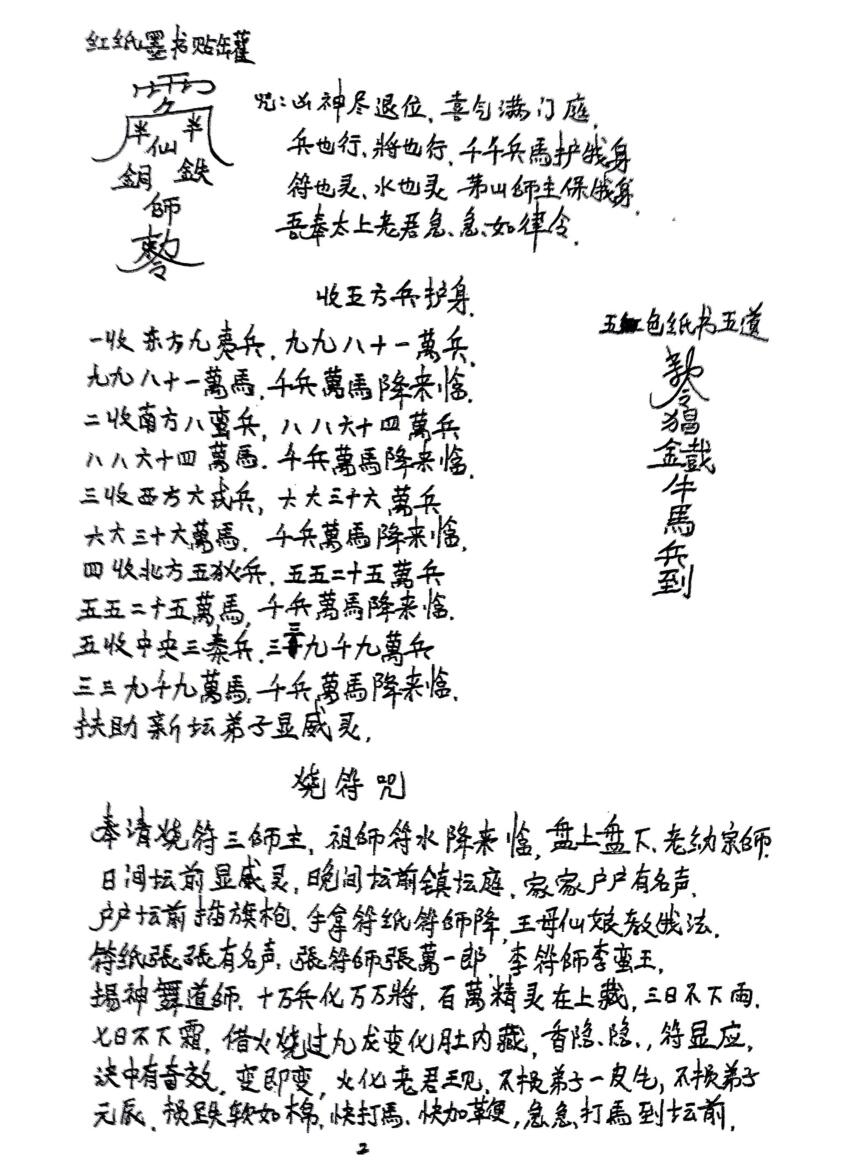 红纸墨书贴在罐
半 仙 半
鉬 鉄
師
咒:凶神尽退位,喜气满门庭,
兵也行、將也行,千千兵馬护我身
符也灵、水也灵 茅山師主保我身,
吾奉太上老君急、急、如律令.
收五方兵护身,
五色纸书五道
敕令猖
金戡
牛
馬
兵
到
一收东方九夷兵,九九八十一萬兵,
九九八十一萬馬,千兵萬馬降来临.
二收南方八蛮兵,八八六十四萬兵
八八六十四萬馬.千兵萬馬降来临,
三收西方六戎兵,六六三十六萬兵
六六三十六萬馬,千兵萬馬降来临,
四收北方五狄兵,五五二十五萬兵
五五二十五萬馬,千兵萬馬降来临.
五收中央三秦兵,三三九千九萬兵
三三九千九萬馬,千兵萬馬降来临.
扶助新坛弟子显威灵,
烧符咒
奉请烧符三師主,祖師符水降来临,盘上盘下、老幼宗師.
日间坛前显威灵,晚间坛前镇坛庭,家家户户有名声.
户户坛前插旗枪.手拿符纸符師降,王母仙娘教我法.
符纸張張有名声,張符師張萬一郎,李符師李蛮王,
揚神舞道師,十万兵化万万將,百萬精灵在上藏,三日不下雨.
七日不下霜,借火烧过九龙变化肚内藏,香隐、隐、,符显应,
诀中有奇效,变即变,火化老君王见,不损弟子一皮毛,不损弟子
元辰,损跌软如棉,快打馬、快加鞭,急急打馬到坛前.
2